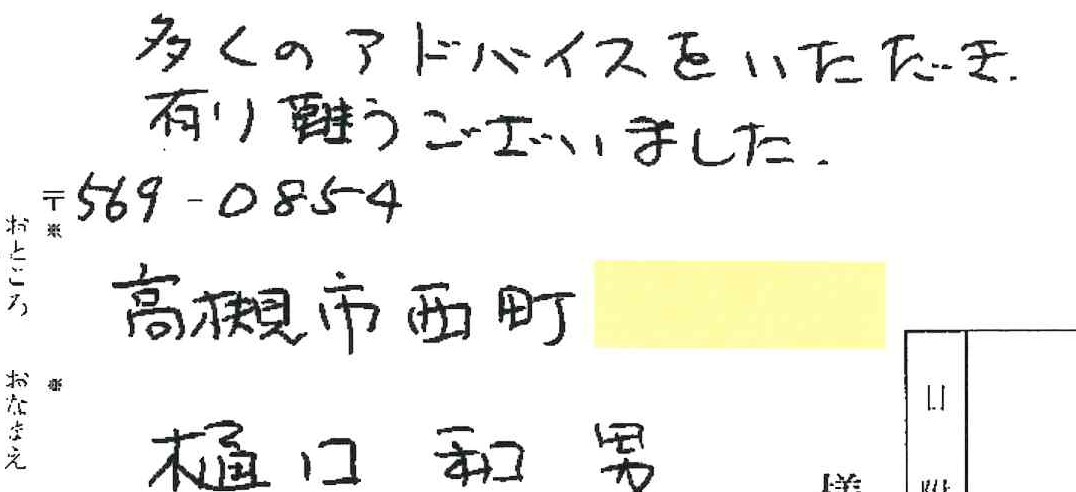 多くのアドバイスをいただき.
有り難うございました.
〒569-0854
※
おところ
高槻市西町
※
おなまえ
樋口 和男
様
日